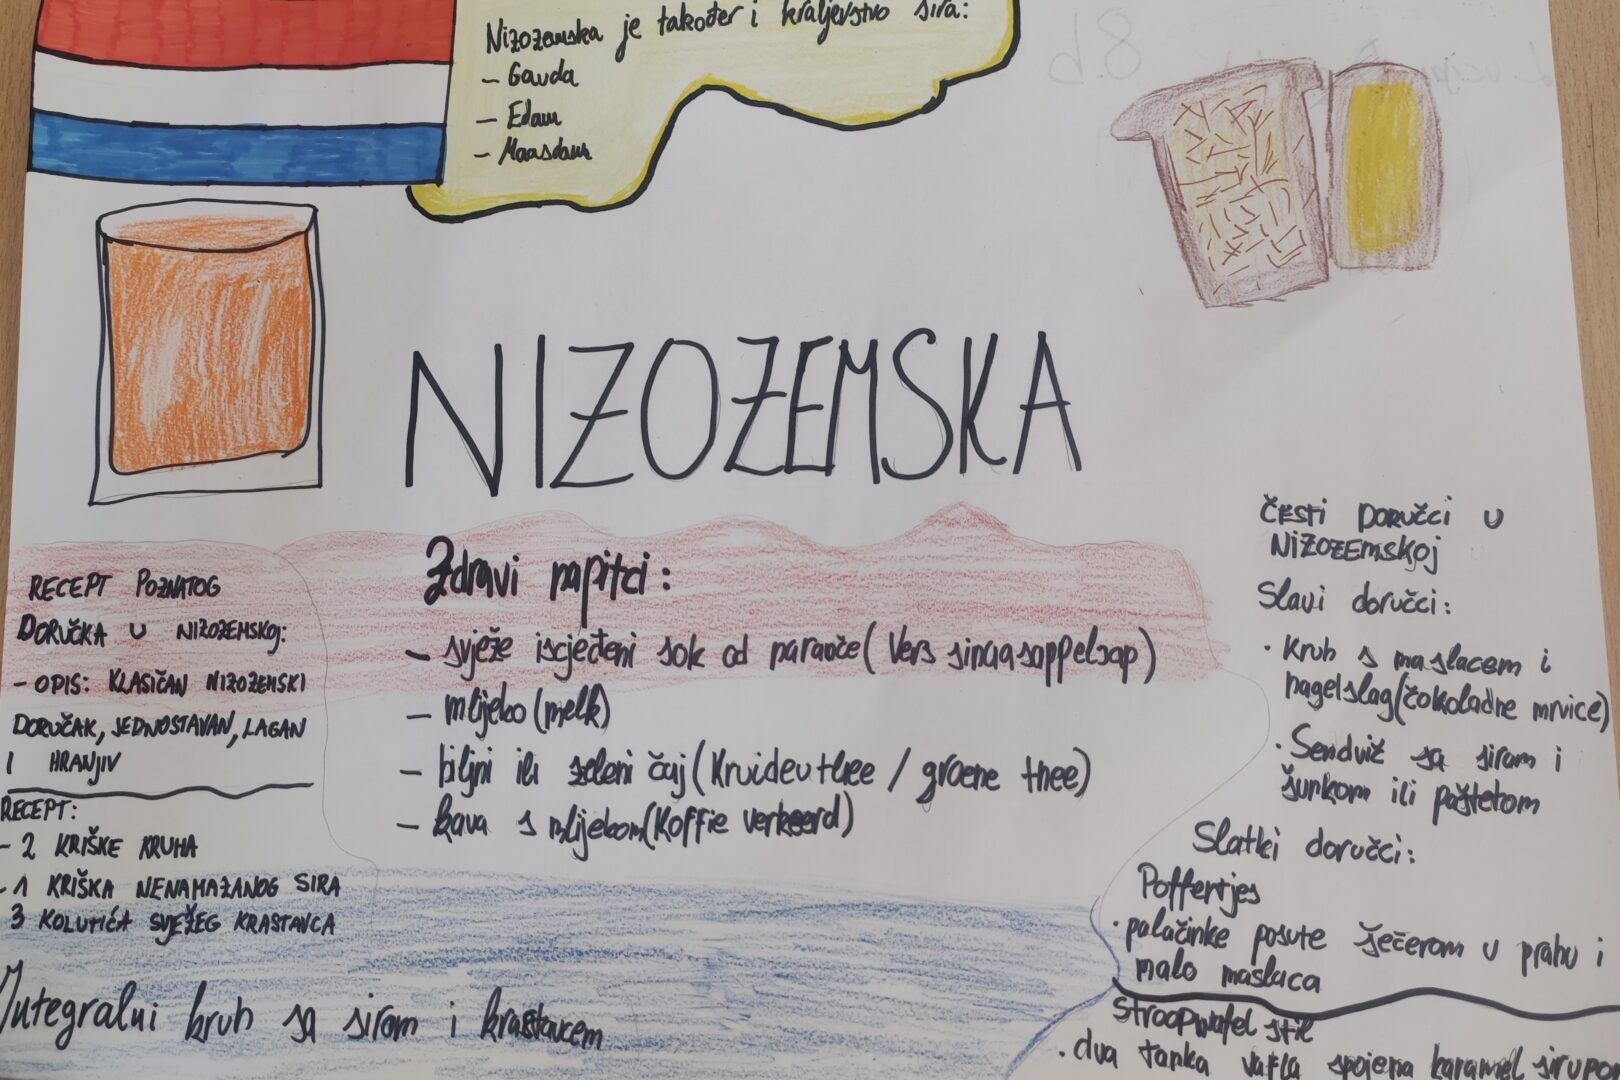 Nizozemska je također i kraljevstvo sira:
- Gauda
- Edam
- Maasdam
8.b
NIZOZEMSKA
RECEPT POZNATOG
DORUČKA U NIZOZEMSKOJ:
- OPIS: KLASIČAN NIZOZEMSKI
DORUČAK, JEDNOSTAVAN, LAGAN
I HRANJIV
RECEPT:
- 2 KRIŠKE KRUHA
- 1 KRIŠKA NENAMAZANOG SIRA
3 KOLUTIĆA SVJEŽEG KRASTAVCA
Integralni kruh sa sirom i krastavcem
Zdravi napitci:
- svježe iscjeđeni sok od naranče (Vers sinaasappelsap)
- mlijeko (melk)
- biljni ili zeleni čaj (Kruidenthee / groene thee)
- kava s mlijekom (Koffie verkeerd)
ČESTI DORUČCI U
NIZOZEMSKOJ
Slani doručci:
· Kruh s maslacem i
hagelslag (čokoladne mrvice)
· Sendvič sa sirom i
šunkom ili paštetom
Slatki doručci:
Poffertjes
· palačinke posute šećerom u prahu i
malo maslaca
Stroopwafel stil
· dva tanka vafla spojena karamel sirupom